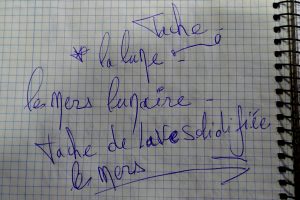 Tache
* la lune -
les mers lunaire -
Tache de lave solidifiée
les mers